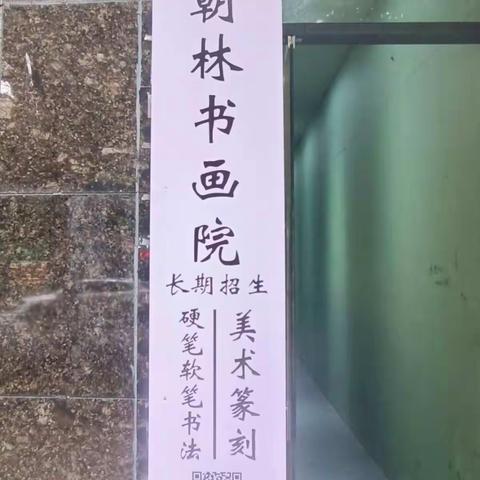 朝林书画院
长期招生
美术篆刻
硬笔软笔书法